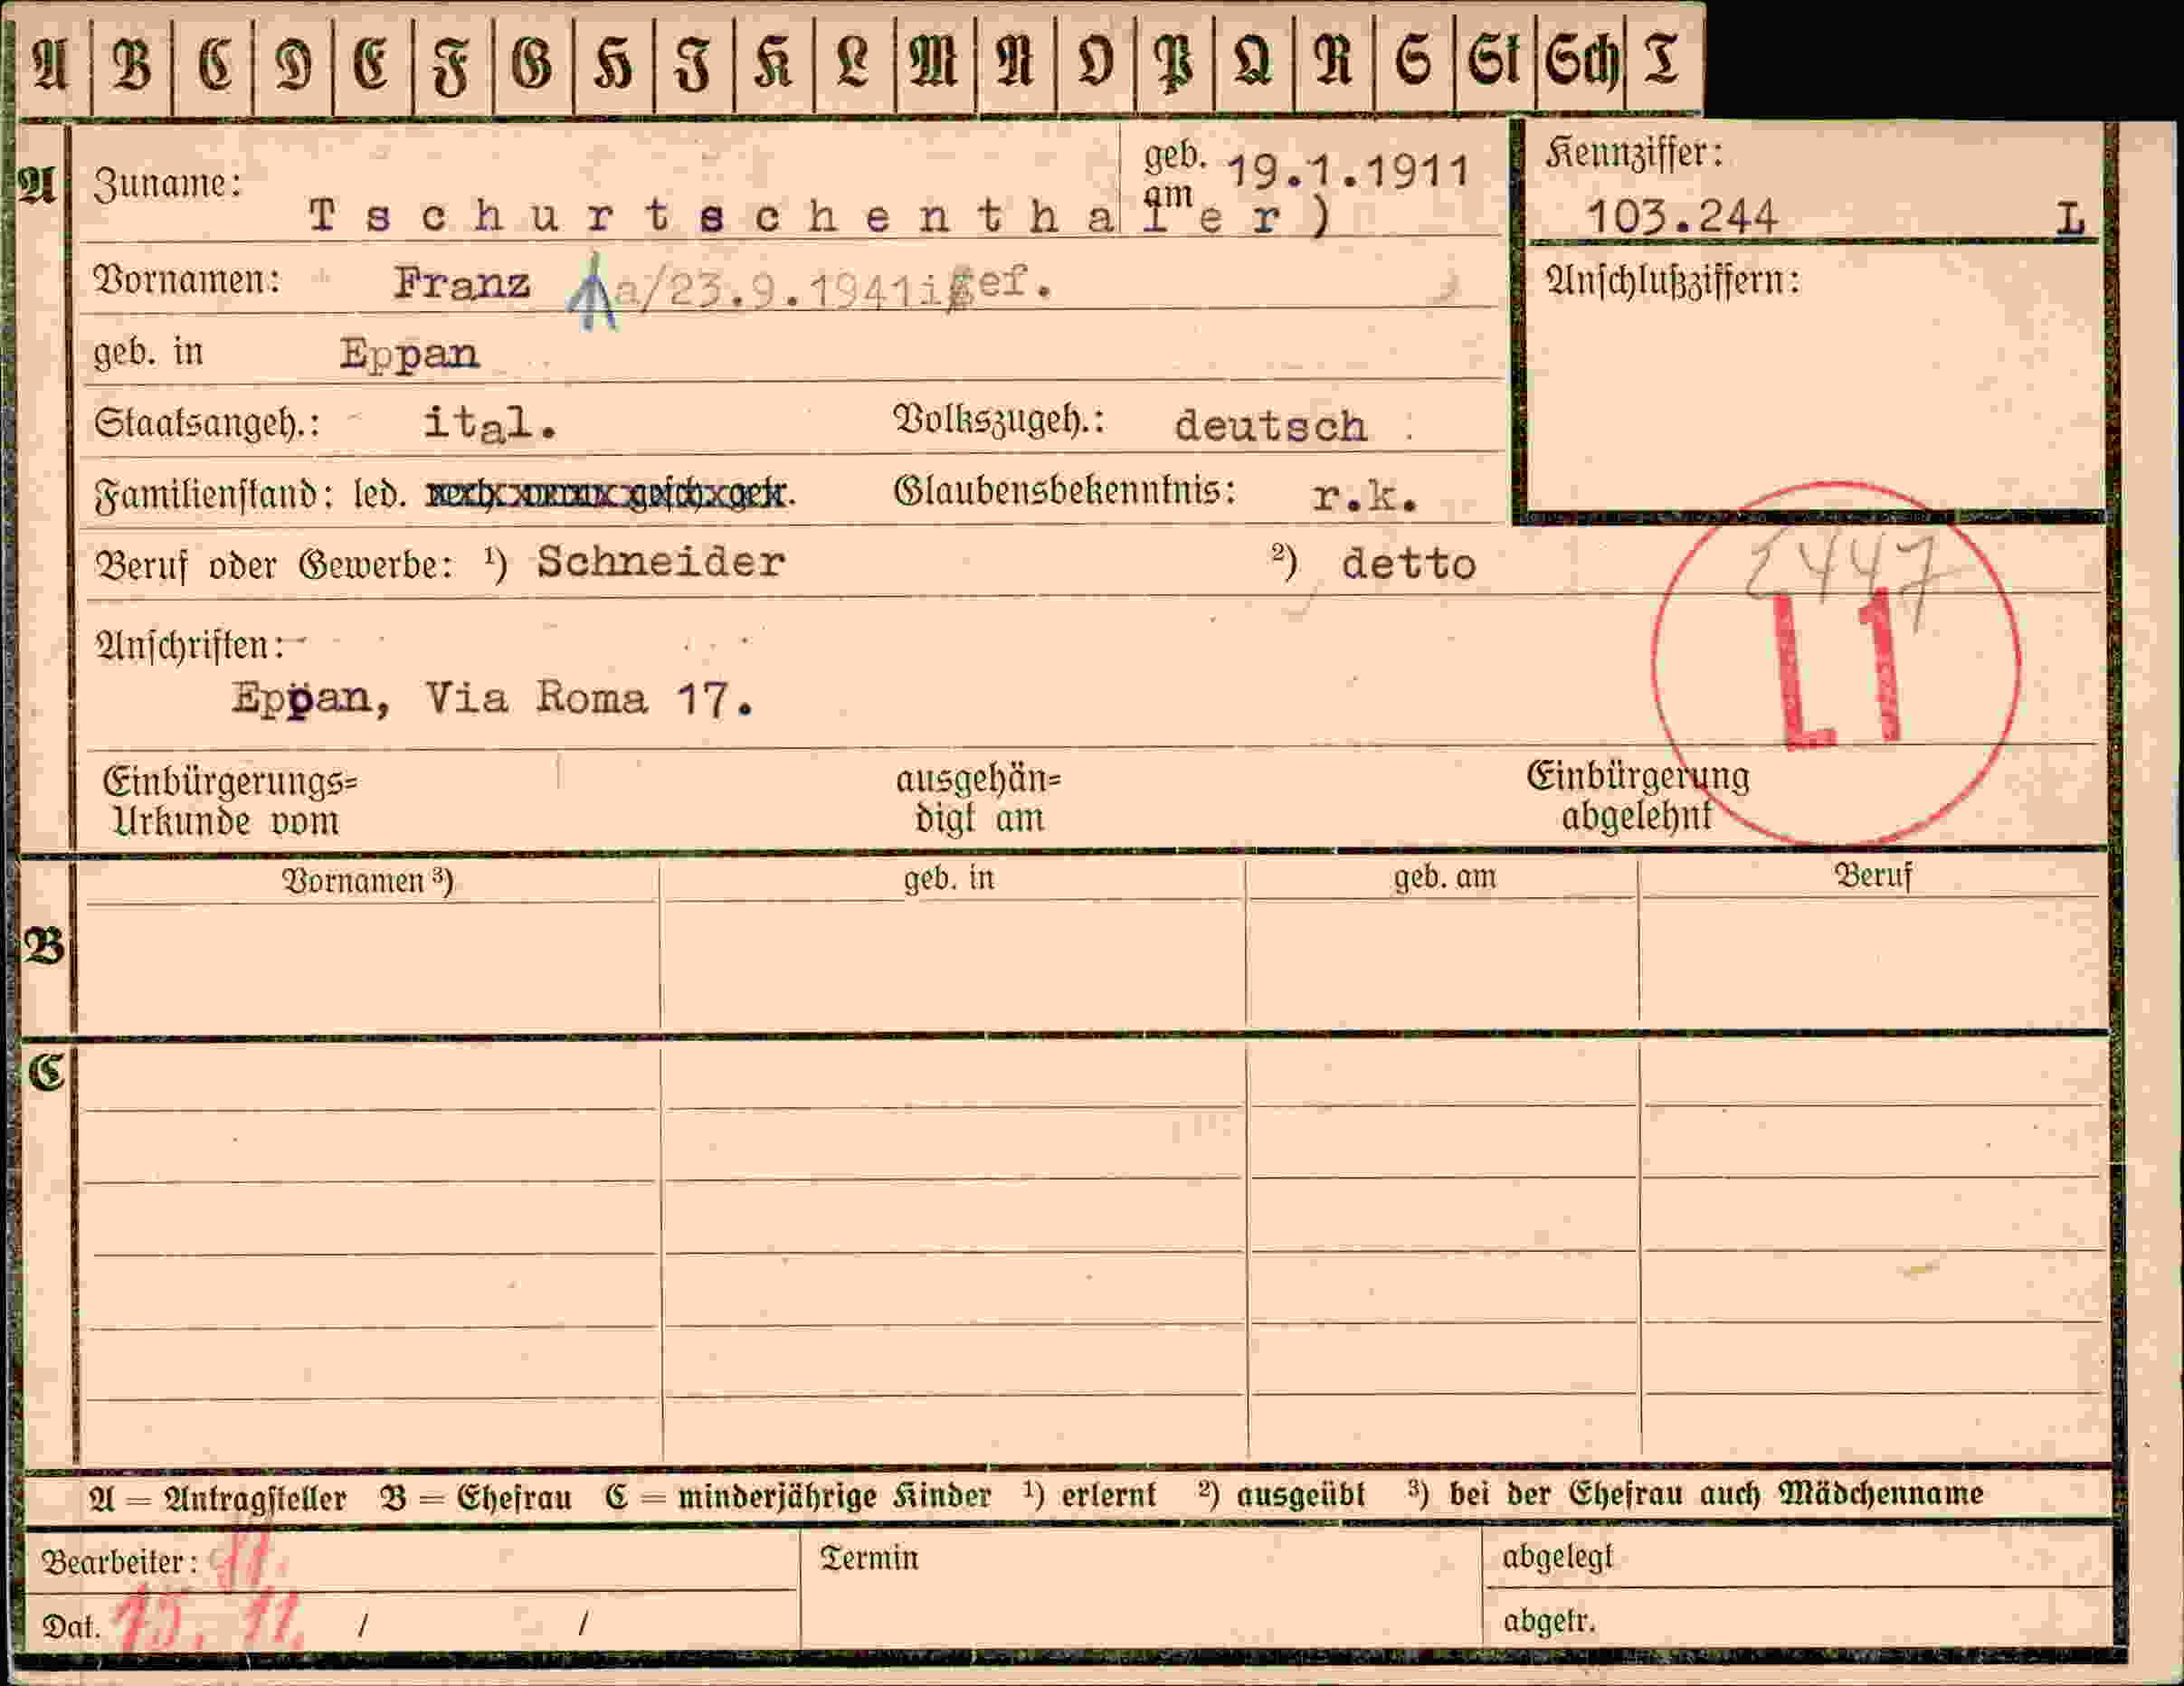 A B C D E F G H J K L M N O P Q R S St Sch T
A Zuname: Tschurtschenthaler) geb. am 19.1.1911
Kennziffer: 103.244 L
Vornamen: Franz a/23.9.1941 gef.
Anschlußziffern:
geb. in Eppan
Staatsangeh.: ital. Volkszugeh.: deutsch
Familienstand: led. gesch. getr. Glaubensbekenntnis: r.k.
Beruf oder Gewerbe: ¹) Schneider ²) detto
2447
L1
Anschriften:
Eppan, Via Roma 17.
Einbürgerungs= Urkunde vom
ausgehän= digt am
Einbürgerung abgelehnt
B Vornamen ³) geb. in geb. am Beruf
C
A = Antragsteller B = Ehefrau C = minderjährige Kinder ¹) erlernt ²) ausgeübt ³) bei der Ehefrau auch Mädchenname
Bearbeiter: Termin abgelegt
Dat. 15. 11. / / abgetr.